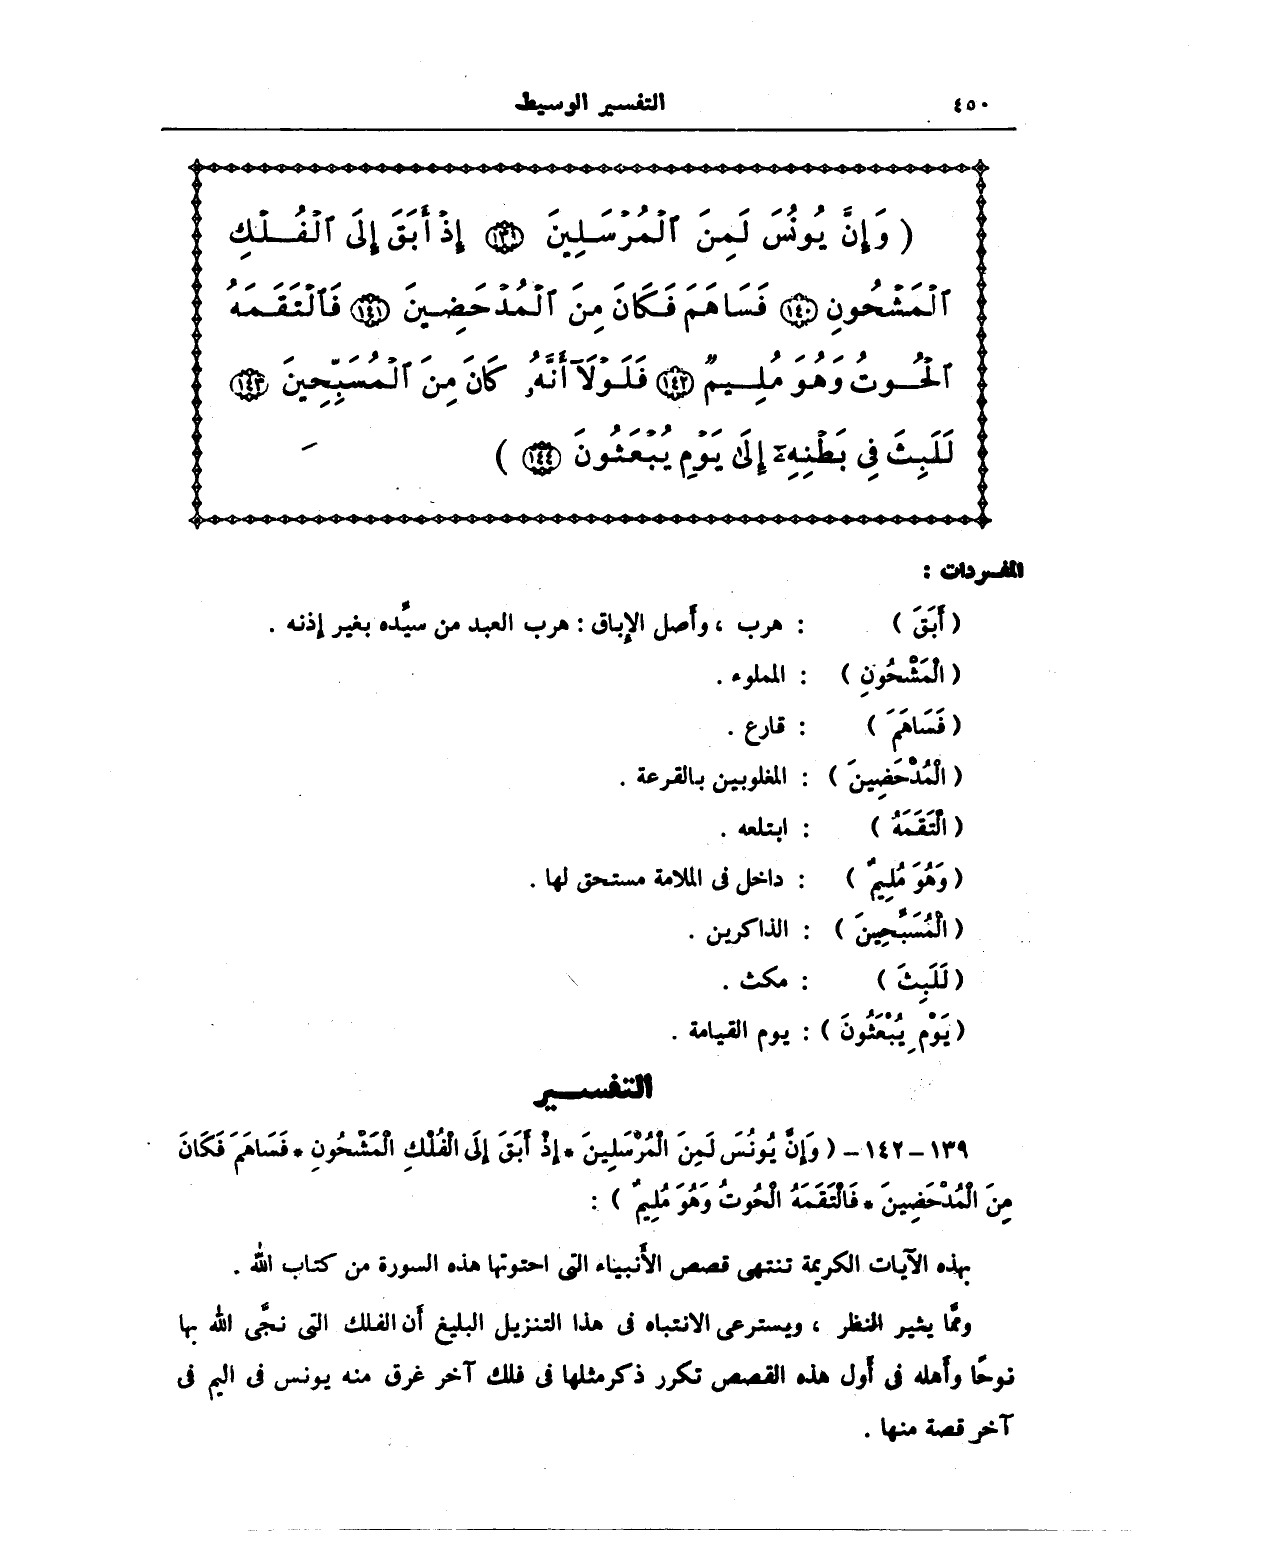 ٤٥٠ التفسير الوسيط
( وَإِنَّ يُونُسَ لَمِنَ ٱلْمُرْسَلِينَ ١٣٩ إِذْ أَبَقَ إِلَى ٱلْفُلْكِ
ٱلْمَشْحُونِ ١٤٠ فَسَاهَمَ فَكَانَ مِنَ ٱلْمُدْحَضِينَ ١٤١ فَٱلْتَقَمَهُ
ٱلْحُوتُ وَهُوَ مُلِيمٌ ١٤٢ فَلَوْلَآ أَنَّهُۥ كَانَ مِنَ ٱلْمُسَبِّحِينَ ١٤٣
لَلَبِثَ فِى بَطْنِهِۦٓ إِلَىٰ يَوْمِ يُبْعَثُونَ ١٤٤ )
المفـردات :
( أَبَقَ ) : هرب ، وأَصل الإِباق : هرب العبد من سيِّده بغير إذنه .
( الْمَشْحُونِ ) : المملوء .
( فَسَاهَمَ ) : قارع .
( الْمُدْحَضِينَ ) : المغلوبين بالقرعة .
( الْتَقَمَهُ ) : ابتلعه .
( وَهُوَ مُلِيمٌ ) : داخل فى الملامة مستحق لها .
( الْمُسَبِّحِينَ ) : الذاكرين .
( لَلَبِثَ ) : مكث .
( يَوْمِ يُبْعَثُونَ ) : يوم القيامة .
التفســـير
١٣٩ – ١٤٢ – ( وَإِنَّ يُونُسَ لَمِنَ الْمُرْسَلِينَ * إِذْ أَبَقَ إِلَى الْفُلْكِ الْمَشْحُونِ * فَسَاهَمَ فَكَانَ
مِنَ الْمُدْحَضِينَ * فَالْتَقَمَهُ الْحُوتُ وَهُوَ مُلِيمٌ ) :
بهذه الآيات الكريمة تنتهى قصص الأَنبياء التى احتوتها هذه السورة من كتاب الله .
وممَّا يثير النظر ، ويسترعى الانتباه فى هذا التنزيل البليغ أن الفلك التى نجَّى الله بها
نوحًا وأَهله فى أَول هذه القصص تكرر ذكر مثلها فى فلك آخر غرق منه يونس فى اليم فى
آخر قصة منها .